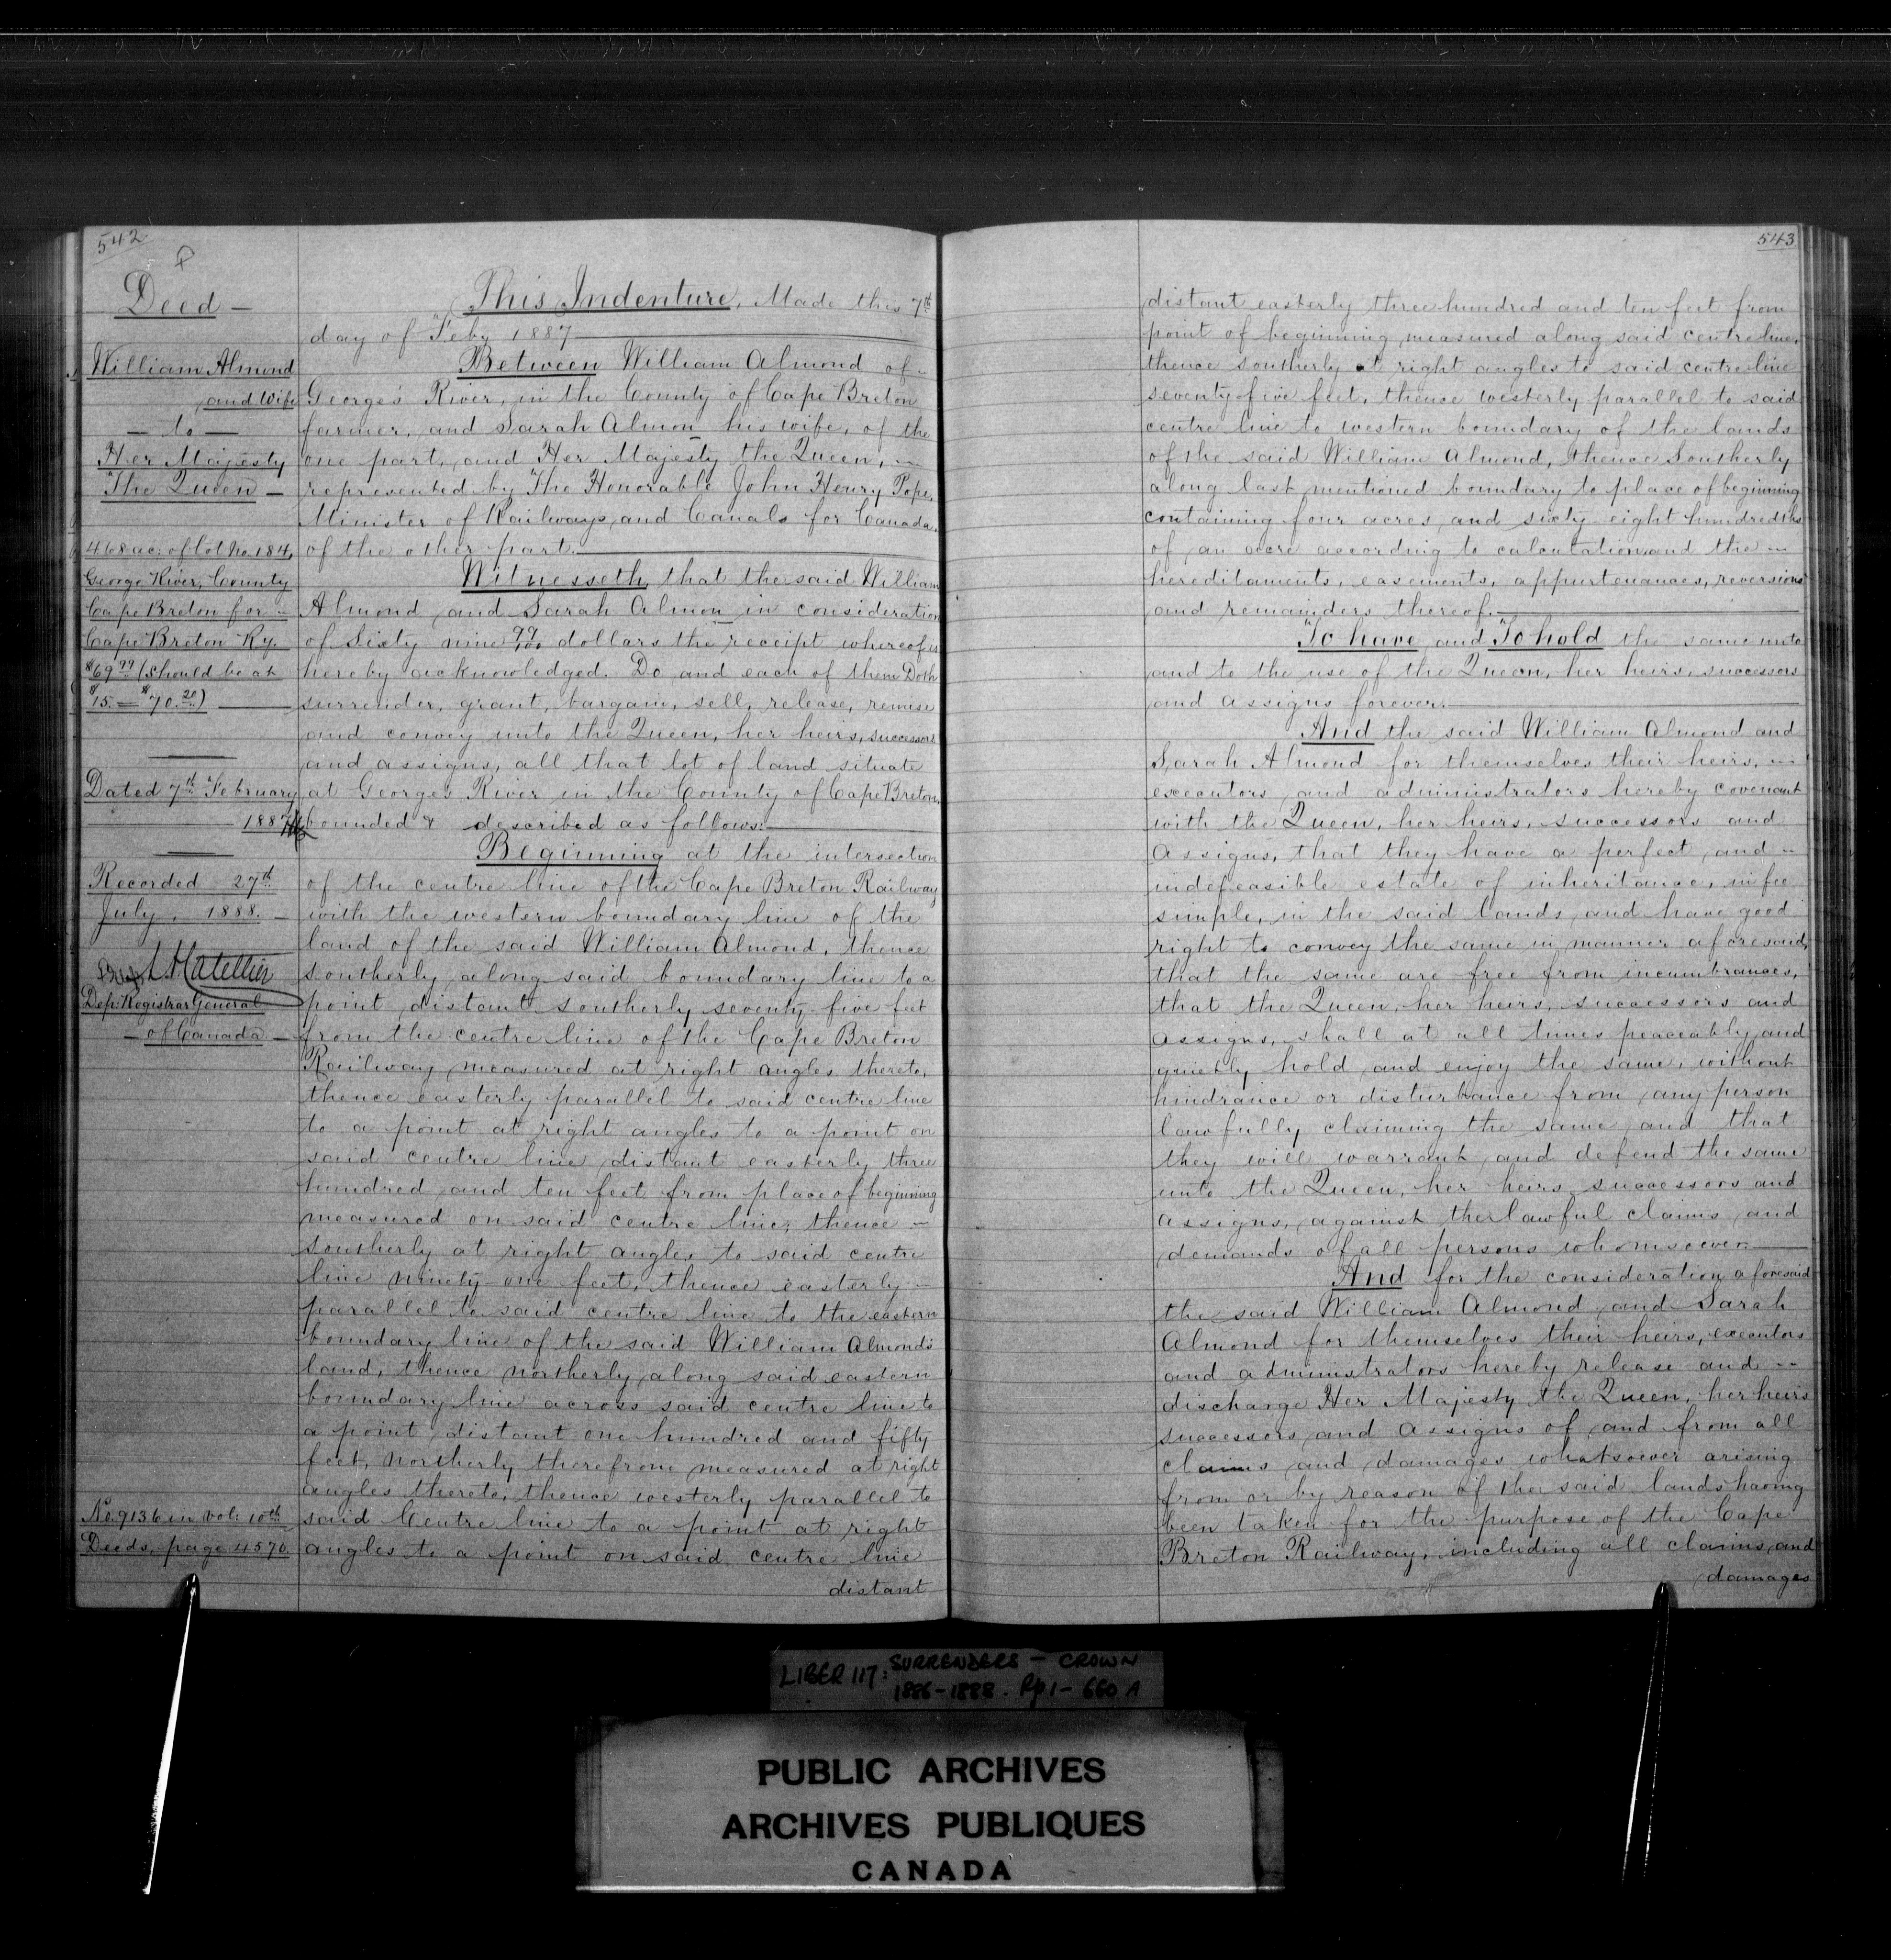 542
Deed —
William Almond
and Wife
— to —
Her Majesty
The Queen —
4.68 ac: of lot No. 184,
George River, County
Cape Breton for —
Cape Breton Ry.
$69.99 (should be at
$15. = $70.20)
Dated 7th February
1887
Recorded 27th
July, 1888.
Dep: Registrar General
— of Canada —
No. 9136 in vol: 10th
Deeds, page 4570.
This Indenture, Made this 7th
day of Feby 1887
Between William Almond of
George's River, in the County of Cape Breton
farmer, and Sarah Almon his wife, of the
one part, and Her Majesty the Queen, —
represented by The Honorable John Henry Pope,
Minister of Railways and Canals for Canada,
of the other part.
Witnesseth that the said William
Almond and Sarah Almon in consideration
of Sixty nine 99/100 dollars the receipt whereof is
hereby acknowledged. Do and each of them Doth
surrender, grant, bargain, sell, release, remise
and convey unto the Queen, her heirs, successors
and assigns, all that lot of land situate
at George's River in the County of Cape Breton,
bounded & described as follows:
Beginning at the intersection
of the centre line of the Cape Breton Railway
with the western boundary line of the
land of the said William Almond, thence
Southerly along said boundary line to a
point distant southerly seventy-five feet
from the centre line of the Cape Breton
Railway measured at right angles thereto,
thence easterly parallel to said centre line
to a point at right angles to a point on
said centre line distant easterly three
hundred and ten feet from place of beginning
measured on said centre line, thence —
Southerly at right angles to said centre
line ninety-one feet, thence easterly —
parallel to said centre line to the eastern
boundary line of the said William Almond's
land, thence northerly along said eastern
boundary line across said centre line to
a point distant one hundred and fifty
feet, northerly therefrom measured at right
angles thereto, thence westerly parallel to
said Centre line to a point at right
angles to a point on said centre line
distant
543
distant easterly three hundred and ten feet from
point of beginning measured along said centre line,
thence southerly at right angles to said centre line
seventy-five feet, thence westerly parallel to said
centre line to western boundary of the lands
of the said William Almond, thence Southerly
along last mentioned boundary to place of beginning
containing four acres and sixty eight hundredths
of an acre according to calculation and the —
hereditaments, easements, appurtenances, reversions
and remainders thereof.
To have and To hold the same unto
and to the use of the Queen, her heirs, successors
and assigns forever.
And the said William Almond and
Sarah Almond for themselves their heirs, —
executors and administrators hereby covenant
with the Queen, her heirs, successors and
assigns, that they have a perfect and —
indefeasible estate of inheritance, in fee
simple, in the said lands and have good
right to convey the same in manner aforesaid,
that the same are free from incumbrances,
that the Queen, her heirs, successors and
assigns, shall at all times peaceably and
quietly hold and enjoy the same, without
hindrance or disturbance from any person
lawfully claiming the same and that
they will warrant and defend the same
unto the Queen, her heirs successors and
assigns, against the lawful claims and
demands of all persons whomsoever.
And for the consideration aforesaid
the said William Almond and Sarah
Almond for themselves their heirs, executors
and administrators hereby release and —
discharge Her Majesty the Queen, her heirs
successors and assigns of and from all
claims and damages whatsoever arising
from or by reason of the said lands having
been taken for the purpose of the Cape
Breton Railway, including all claims and
damages
LIBER 117: SURRENDERS — CROWN
1886–1888. Pp 1 – 660 A
PUBLIC ARCHIVES
ARCHIVES PUBLIQUES
CANADA